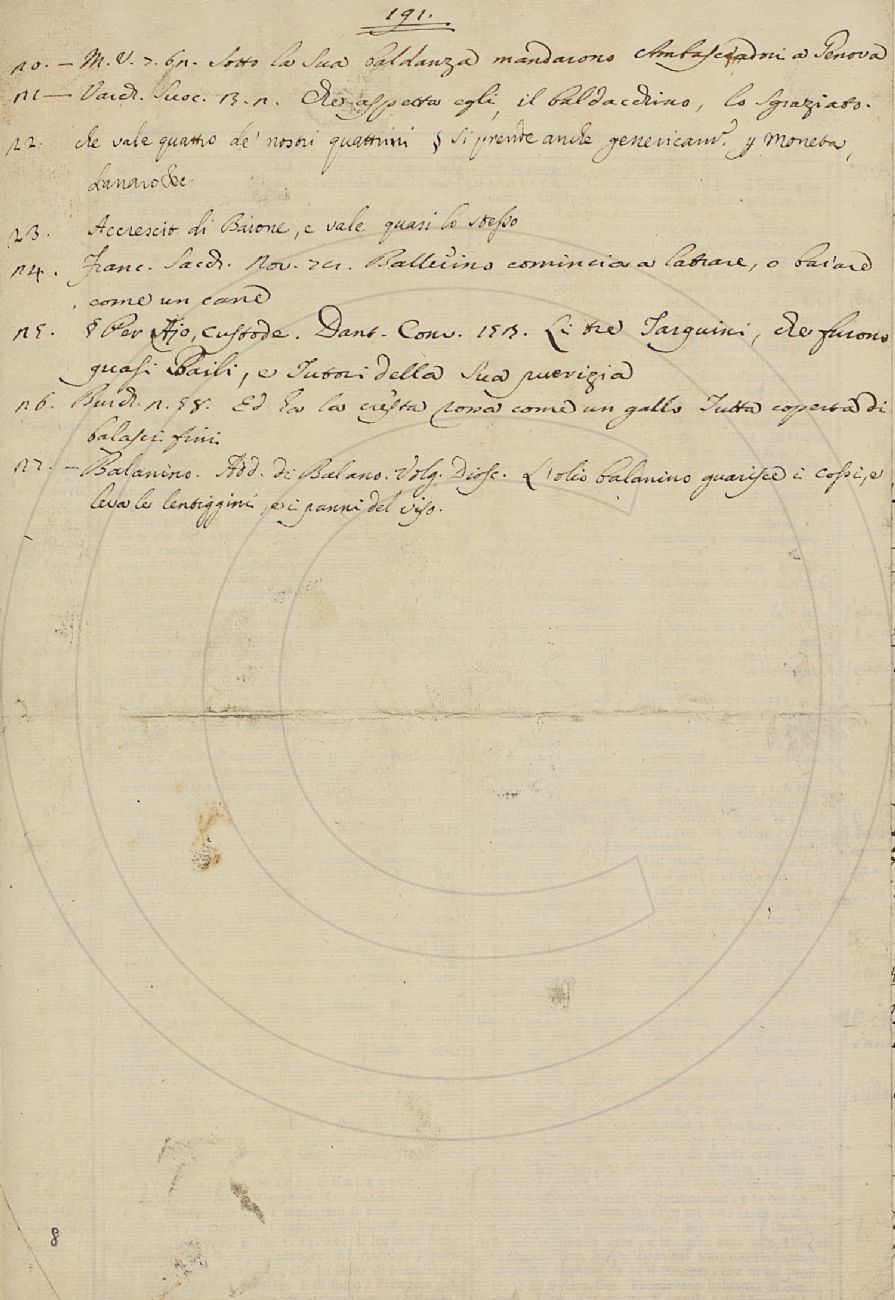 191.
20. — M. V. 7. 62. Sotto la sua baldanza mandarono Ambasciadori a Genova
21 — Varch. Suoc. 3. 2. Che aspetta egli, il baldacchino, lo sgraziato.
22. che vale quattro de' nostri quattrini § Si prende anche genericam. p Moneta,
danaro &c.
23. Accrescit. di Baione, e vale quasi lo stesso
24. Franc. Sacch. Nov. 71. Ballerino comincia a latrare, o baiare
come un cane
25. § Per Ajo, Custode. Dant. Conv. 153. Li tre Tarquini, che furono
quasi Baili, e Tutori della sua puerizia
26. Burch. 2. 58. Ed ha la cresta rossa come un gallo Tutta coperta di
balasci fini
27. — Balanino. Add. di Balano. Volg. Diosc. L'olio balanino guarisce i cossi, e
leva le lentiggini, e i panni del viso.
8